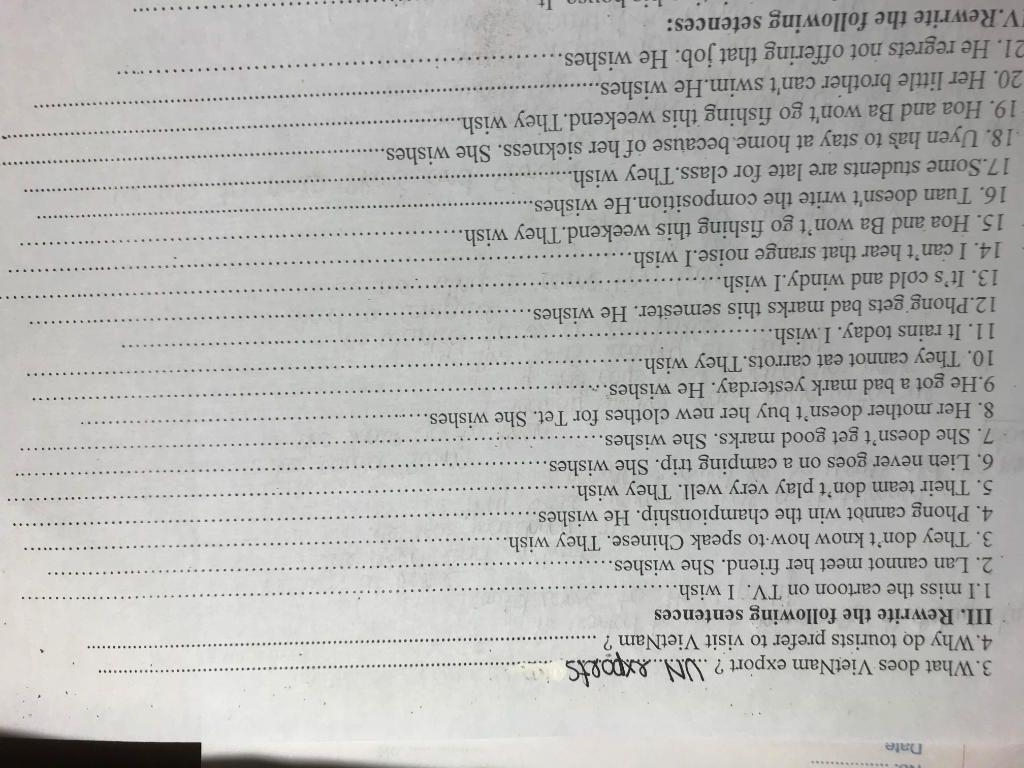 No. ..................
Date
3.What does VietNam export ? ..VN..exports................................................
4.Why do tourists prefer to visit VietNam ? ................................................
III. Rewrite the following sentences
1.I miss the cartoon on TV. I wish................................................
2. Lan cannot meet her friend. She wishes................................................
3. They don't know how to speak Chinese. They wish................................................
4. Phong cannot win the championship. He wishes................................................
5. Their team don't play very well. They wish................................................
6. Lieh never goes on a camping trip. She wishes................................................
7. She doesn't get good marks. She wishes................................................
8. Her mother doesn't buy her new clothes for Tet. She wishes................................................
9.He got a bad mark yesterday. He wishes................................................
10. They cannot eat carrots.They wish................................................
11. It rains today. I wish................................................
12.Phong gets bad marks this semester. He wishes................................................
13. It's cold and windy.I wish................................................
14. I can't hear that srange noise.I wish................................................
15. Hoa and Ba won't go fishing this weekend.They wish................................................
16. Tuan doesn't write the composition.He wishes................................................
17.Some students are late for class.They wish................................................
18. Uyen has to stay at home because of her sickness. She wishes................................................
19. Hoa and Ba won't go fishing this weekend.They wish................................................
20. Her little brother can't swim.He wishes................................................
21. He regrets not offering that job. He wishes................................................
IV.Rewrite the following setences:
house. It